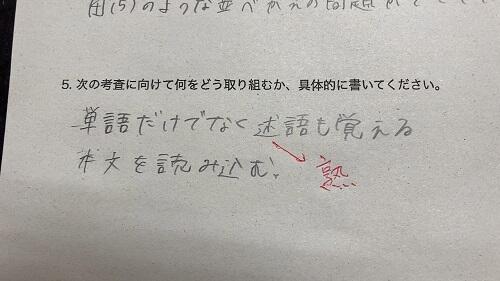 用(5)のような並べかえの問題が
5. 次の考査に向けて何をどう取り組むか、具体的に書いてください。
単語だけでなく述語も覚える
本文を読み込む。
熟